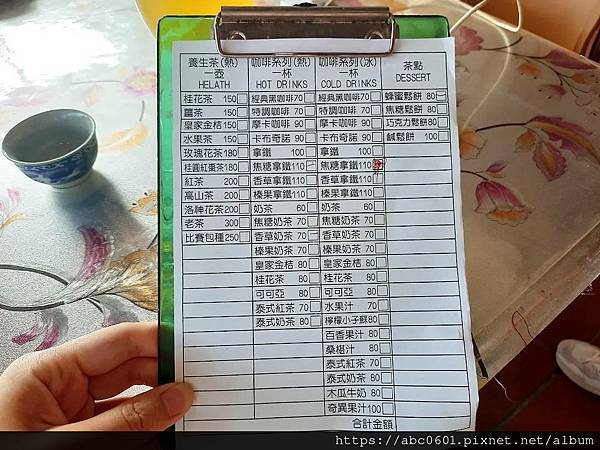 養生茶(熱)
一壺
HELATH
桂花茶 150
薑茶 150
皇家金桔 150
水果茶 150
玫瑰花茶 180
桂圓紅棗茶 180
紅茶 200
高山茶 200
洛神花茶 200
老茶 300
比賽包種 250
咖啡系列(熱)
一杯
HOT DRINKS
經典黑咖啡 70
特調咖啡 70
摩卡咖啡 90
卡布奇諾 90
拿鐵 100
焦糖拿鐵 110
香草拿鐵 110
榛果拿鐵 110
奶茶 60
焦糖奶茶 70
香草奶茶 70
榛果奶茶 70
皇家金桔 80
桂花茶 80
可可亞 80
泰式紅茶 70
泰式奶茶 80
咖啡系列(冰)
一杯
COLD DRINKS
經典黑咖啡 70
特調咖啡 70
摩卡咖啡 90
卡布奇諾 90
拿鐵 100
焦糖拿鐵 110
香草拿鐵 110
榛果拿鐵 110
奶茶 60
焦糖奶茶 70
香草奶茶 70
榛果奶茶 70
皇家金桔 80
桂花茶 80
可可亞 80
水果汁 70
檸檬小子酥 80
百香果汁 80
桑椹汁 80
泰式紅茶 70
泰式奶茶 80
木瓜牛奶 80
奇異果汁 100
合計金額
茶點
DESSERT
蜂蜜鬆餅 80
焦糖鬆餅 80
巧克力鬆餅 80
鹹鬆餅 100
https://abc0601.pixnet.net/album